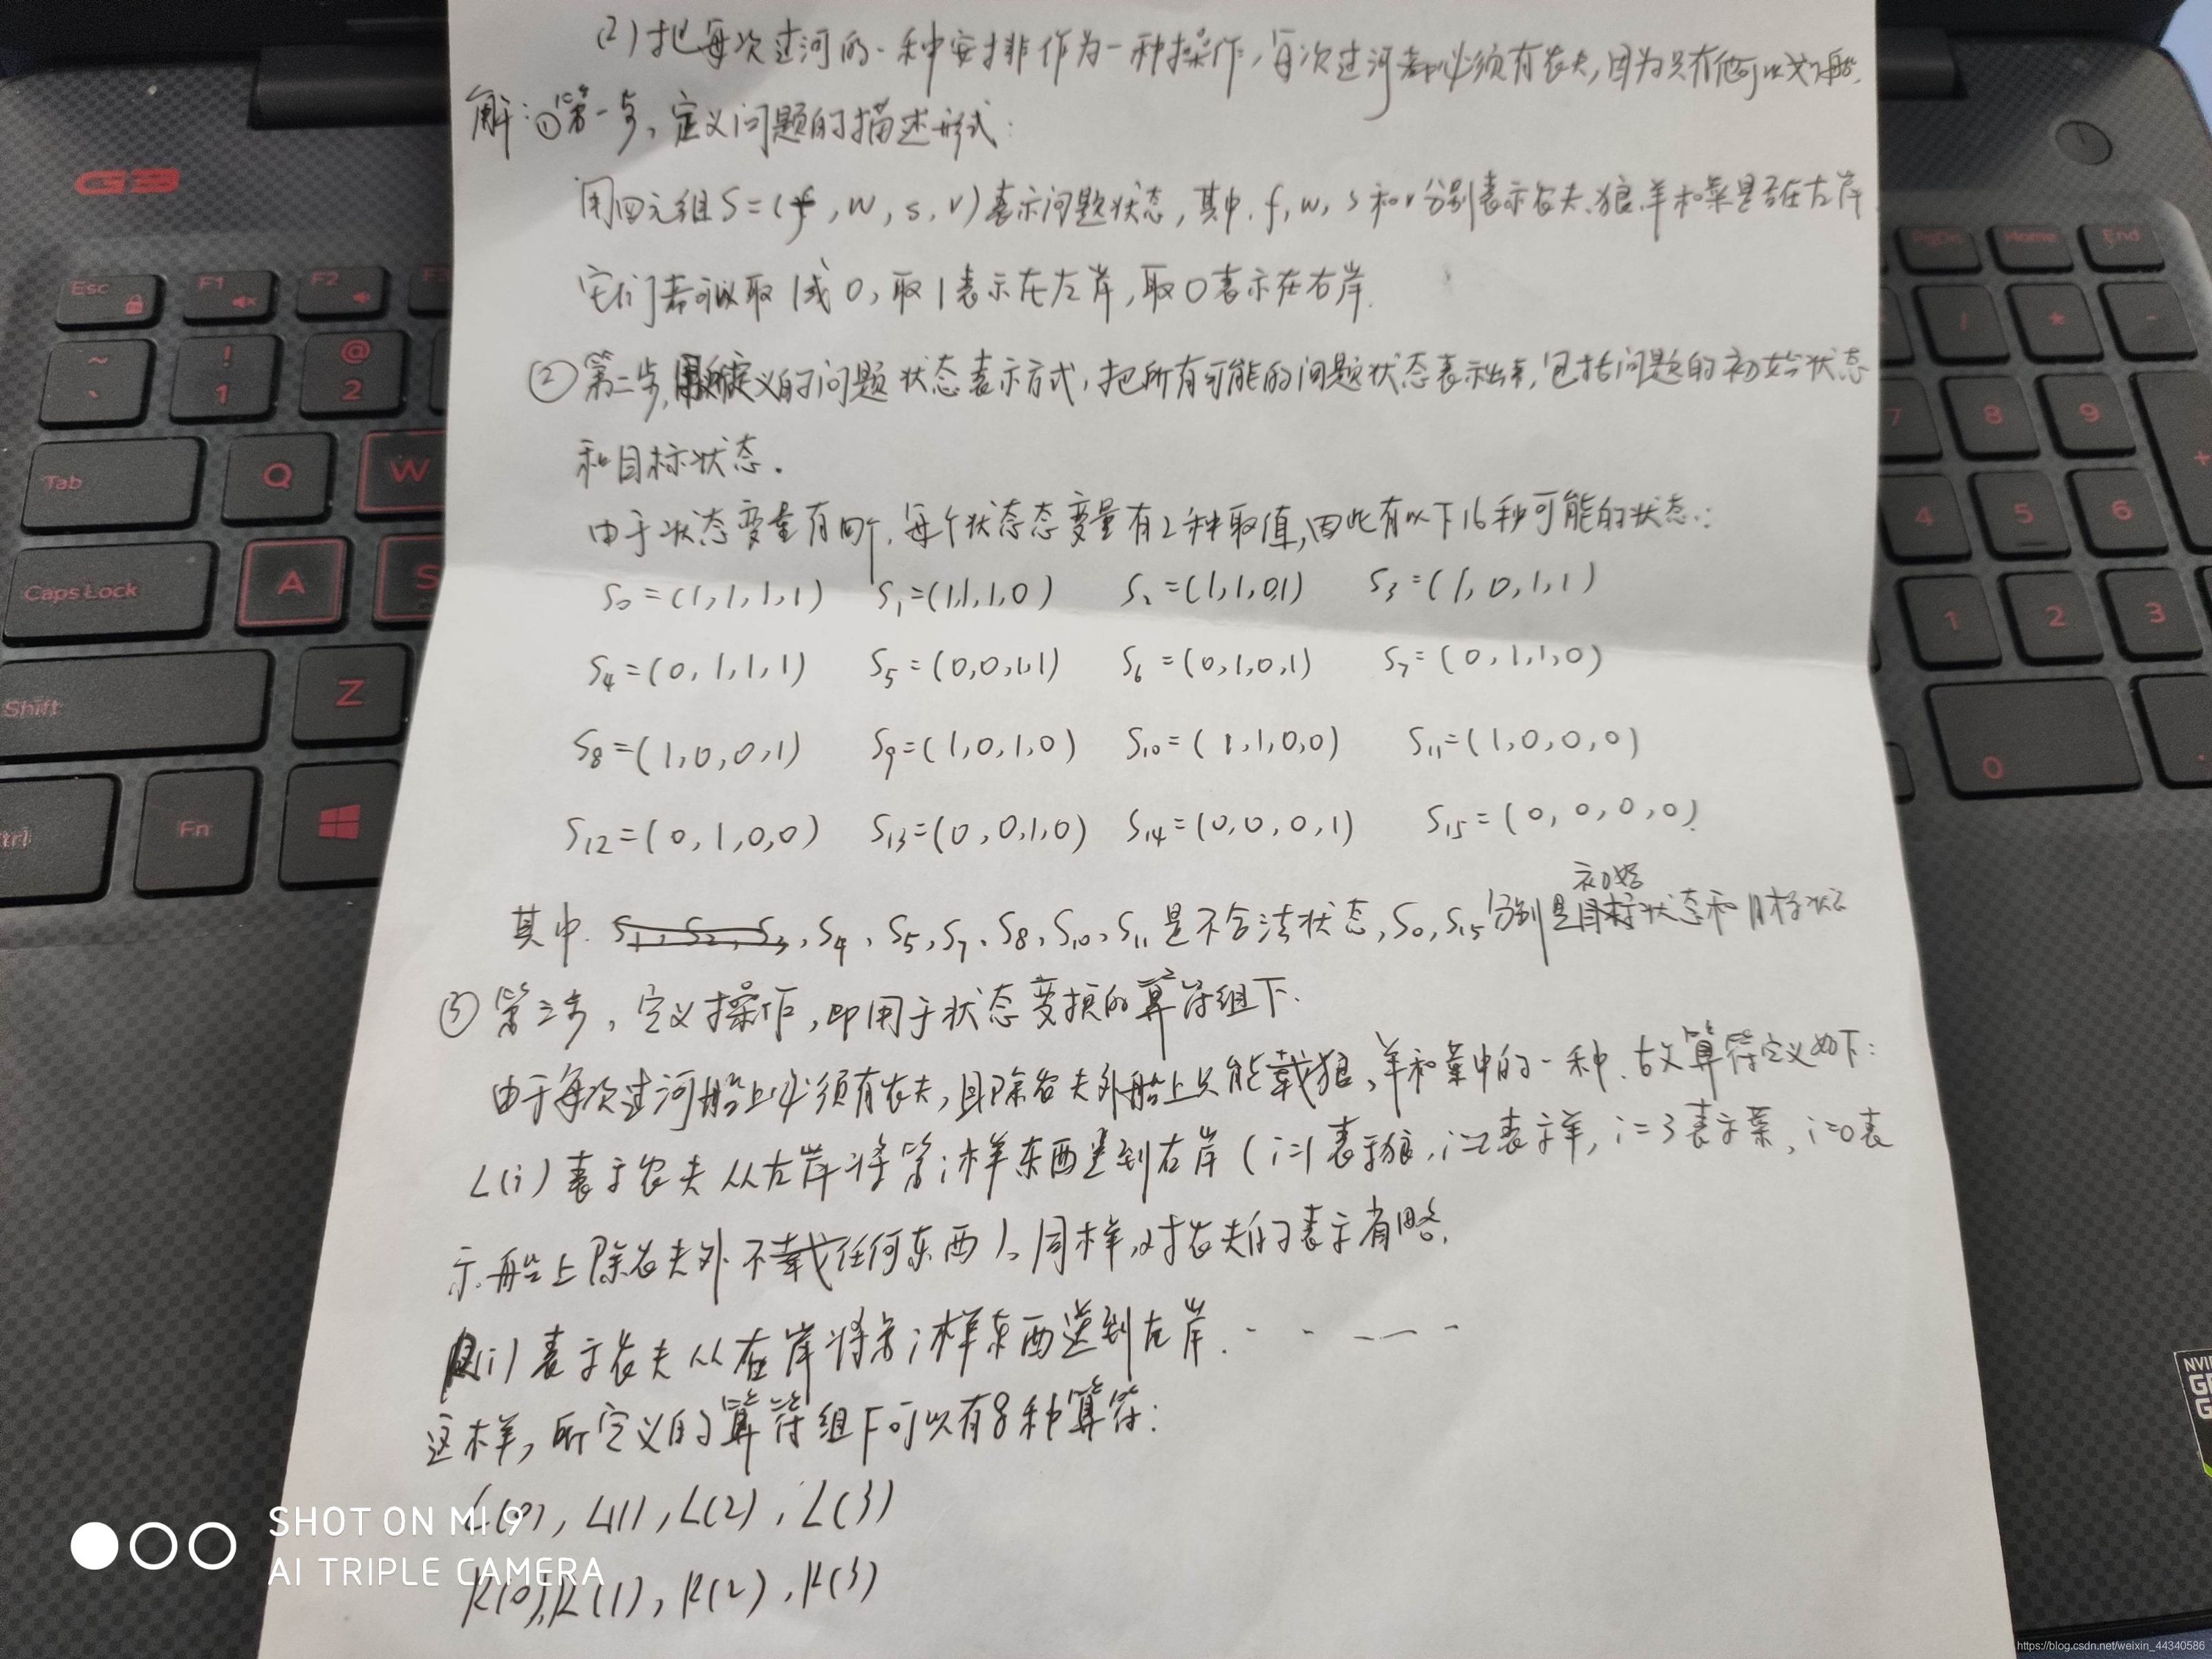 (2) 把每次过河的一种安排作为一种操作，每次过河都必须有农夫，因为只有他可以划船.
解: ①第一步，定义问题的描述形式:
用四元组S=(f, w, s, v)表示问题状态，其中. f, w, s和v分别表示农夫、狼、羊和菜是否在左岸
它们都可以取1或0，取1表示在左岸，取0表示在右岸.
②第二步,用所定义的问题状态表示方式，把所有可能的问题状态表示出来，包括问题的初始状态
和目标状态.
由于状态变量有四个，每个状态态变量有2种取值,因此有以下16种可能的状态:
S0=(1,1,1,1) S1=(1,1,1,0) S2=(1,1,0,1) S3=(1,0,1,1)
S4=(0,1,1,1) S5=(0,0,1,1) S6=(0,1,0,1) S7=(0,1,1,0)
S8=(1,0,0,1) S9=(1,0,1,0) S10=(1,1,0,0) S11=(1,0,0,0)
S12=(0,1,0,0) S13=(0,0,1,0) S14=(0,0,0,1) S15=(0,0,0,0)
初始
其中. S1, S2, S3, S4、S5, S7、S8、S10、S11是不合法状态, S0, S15分别是目标状态和目标状态
③第三步，定义操作，即用于状态变换的算符组F.
由于每次过河船上必须有农夫，且除农夫外船上只能载狼、羊和菜中的一种.故算符定义如下:
L(i)表示农夫从左岸将第i样东西送到右岸(i=1表示狼, i=2表示羊, i=3表示菜, i=0表
示船上除农夫外不载任何东西).同样,对农夫的表示省略.
R(i)表示农夫从右岸将第i样东西送到左岸.
这样，所定义的算符组F可以有8种算符:
L(0), L(1), L(2), L(3)
R(0), R(1), R(2), R(3)
SHOT ON MI 9
AI TRIPLE CAMERA
G3
Esc
F1
F2
~
!
1
@
2
Tab
Q
W
Caps Lock
A
S
Shift
Z
Fn
PgDn
Home
End
/
*
-
7
8
9
+
4
5
6
1
2
3
0
https://blog.csdn.net/weixin_44340586